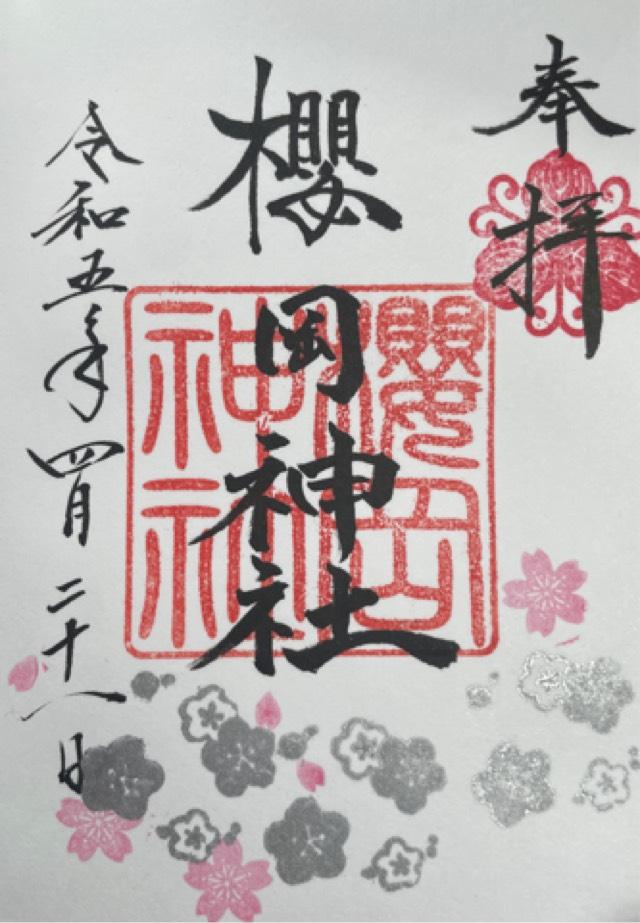 奉拝
櫻岡神社
櫻岡神社
令和五年四月二十八日